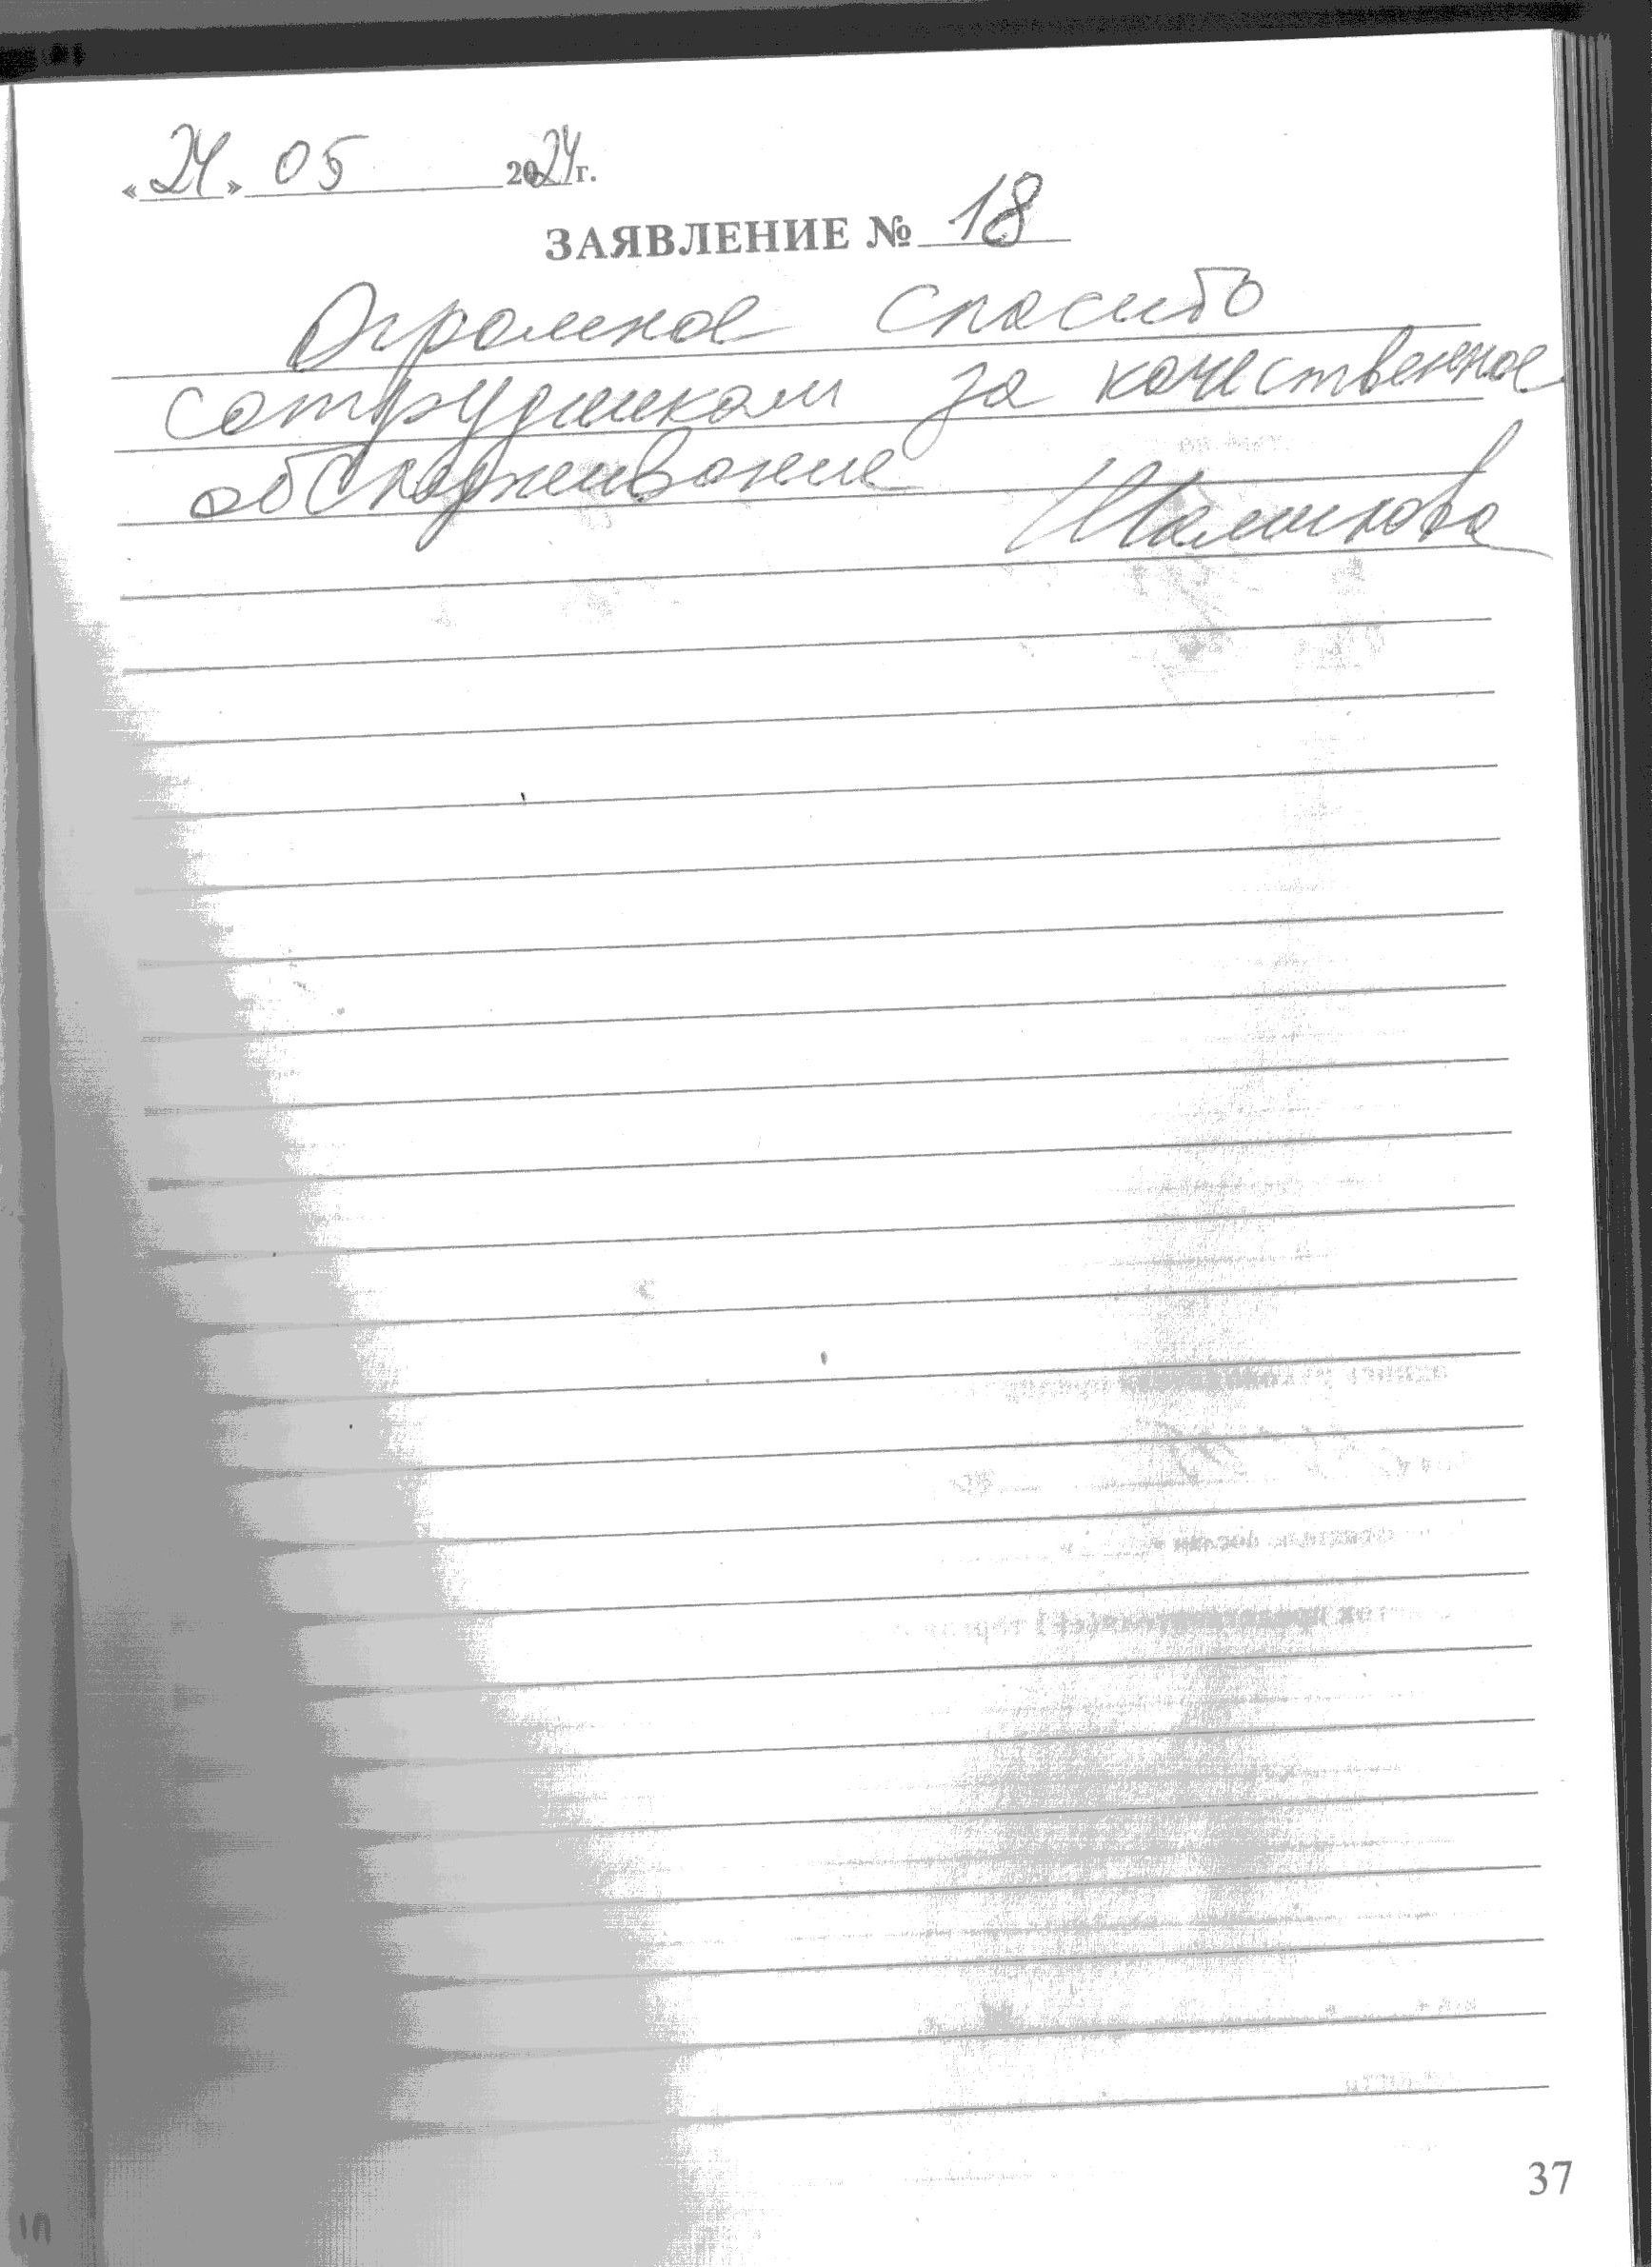 «24» 05 2024г.
ЗАЯВЛЕНИЕ № 18
Огромное спасибо
сотрудникам за качественное
обслуживание
37